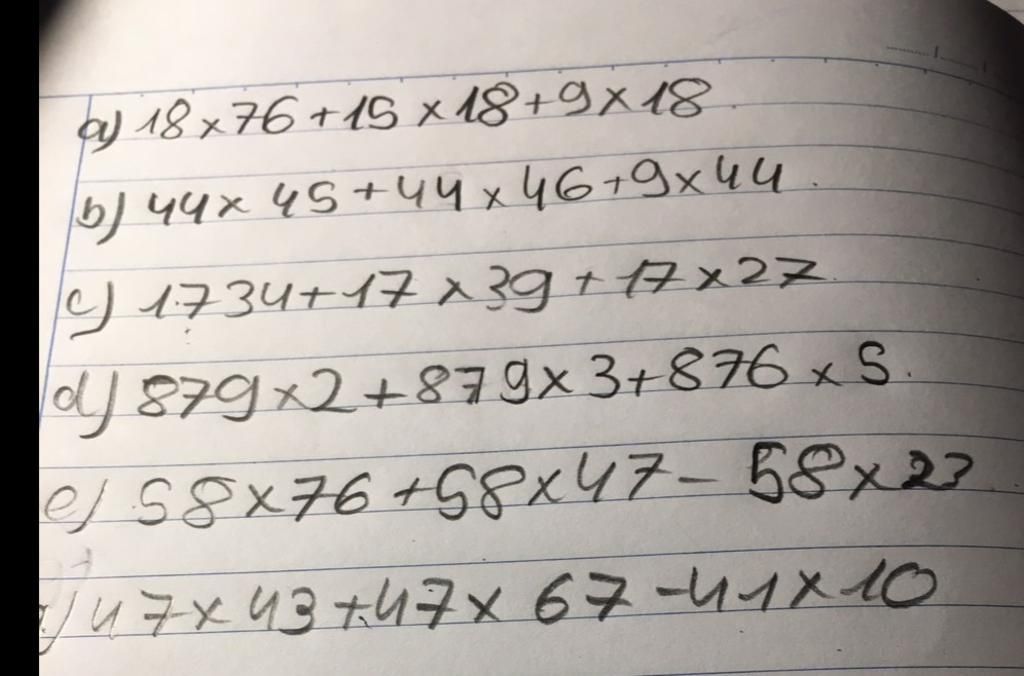 a) 18 x 76 + 15 x 18 + 9 x 18
b) 44 x 45 + 44 x 46 + 9 x 44
c) 1734 + 17 x 39 + 17 x 27
d) 879 x 2 + 879 x 3 + 876 x 5
e) 58 x 76 + 58 x 47 - 58 x 23
47 x 43 + 47 x 67 - 41 x 10